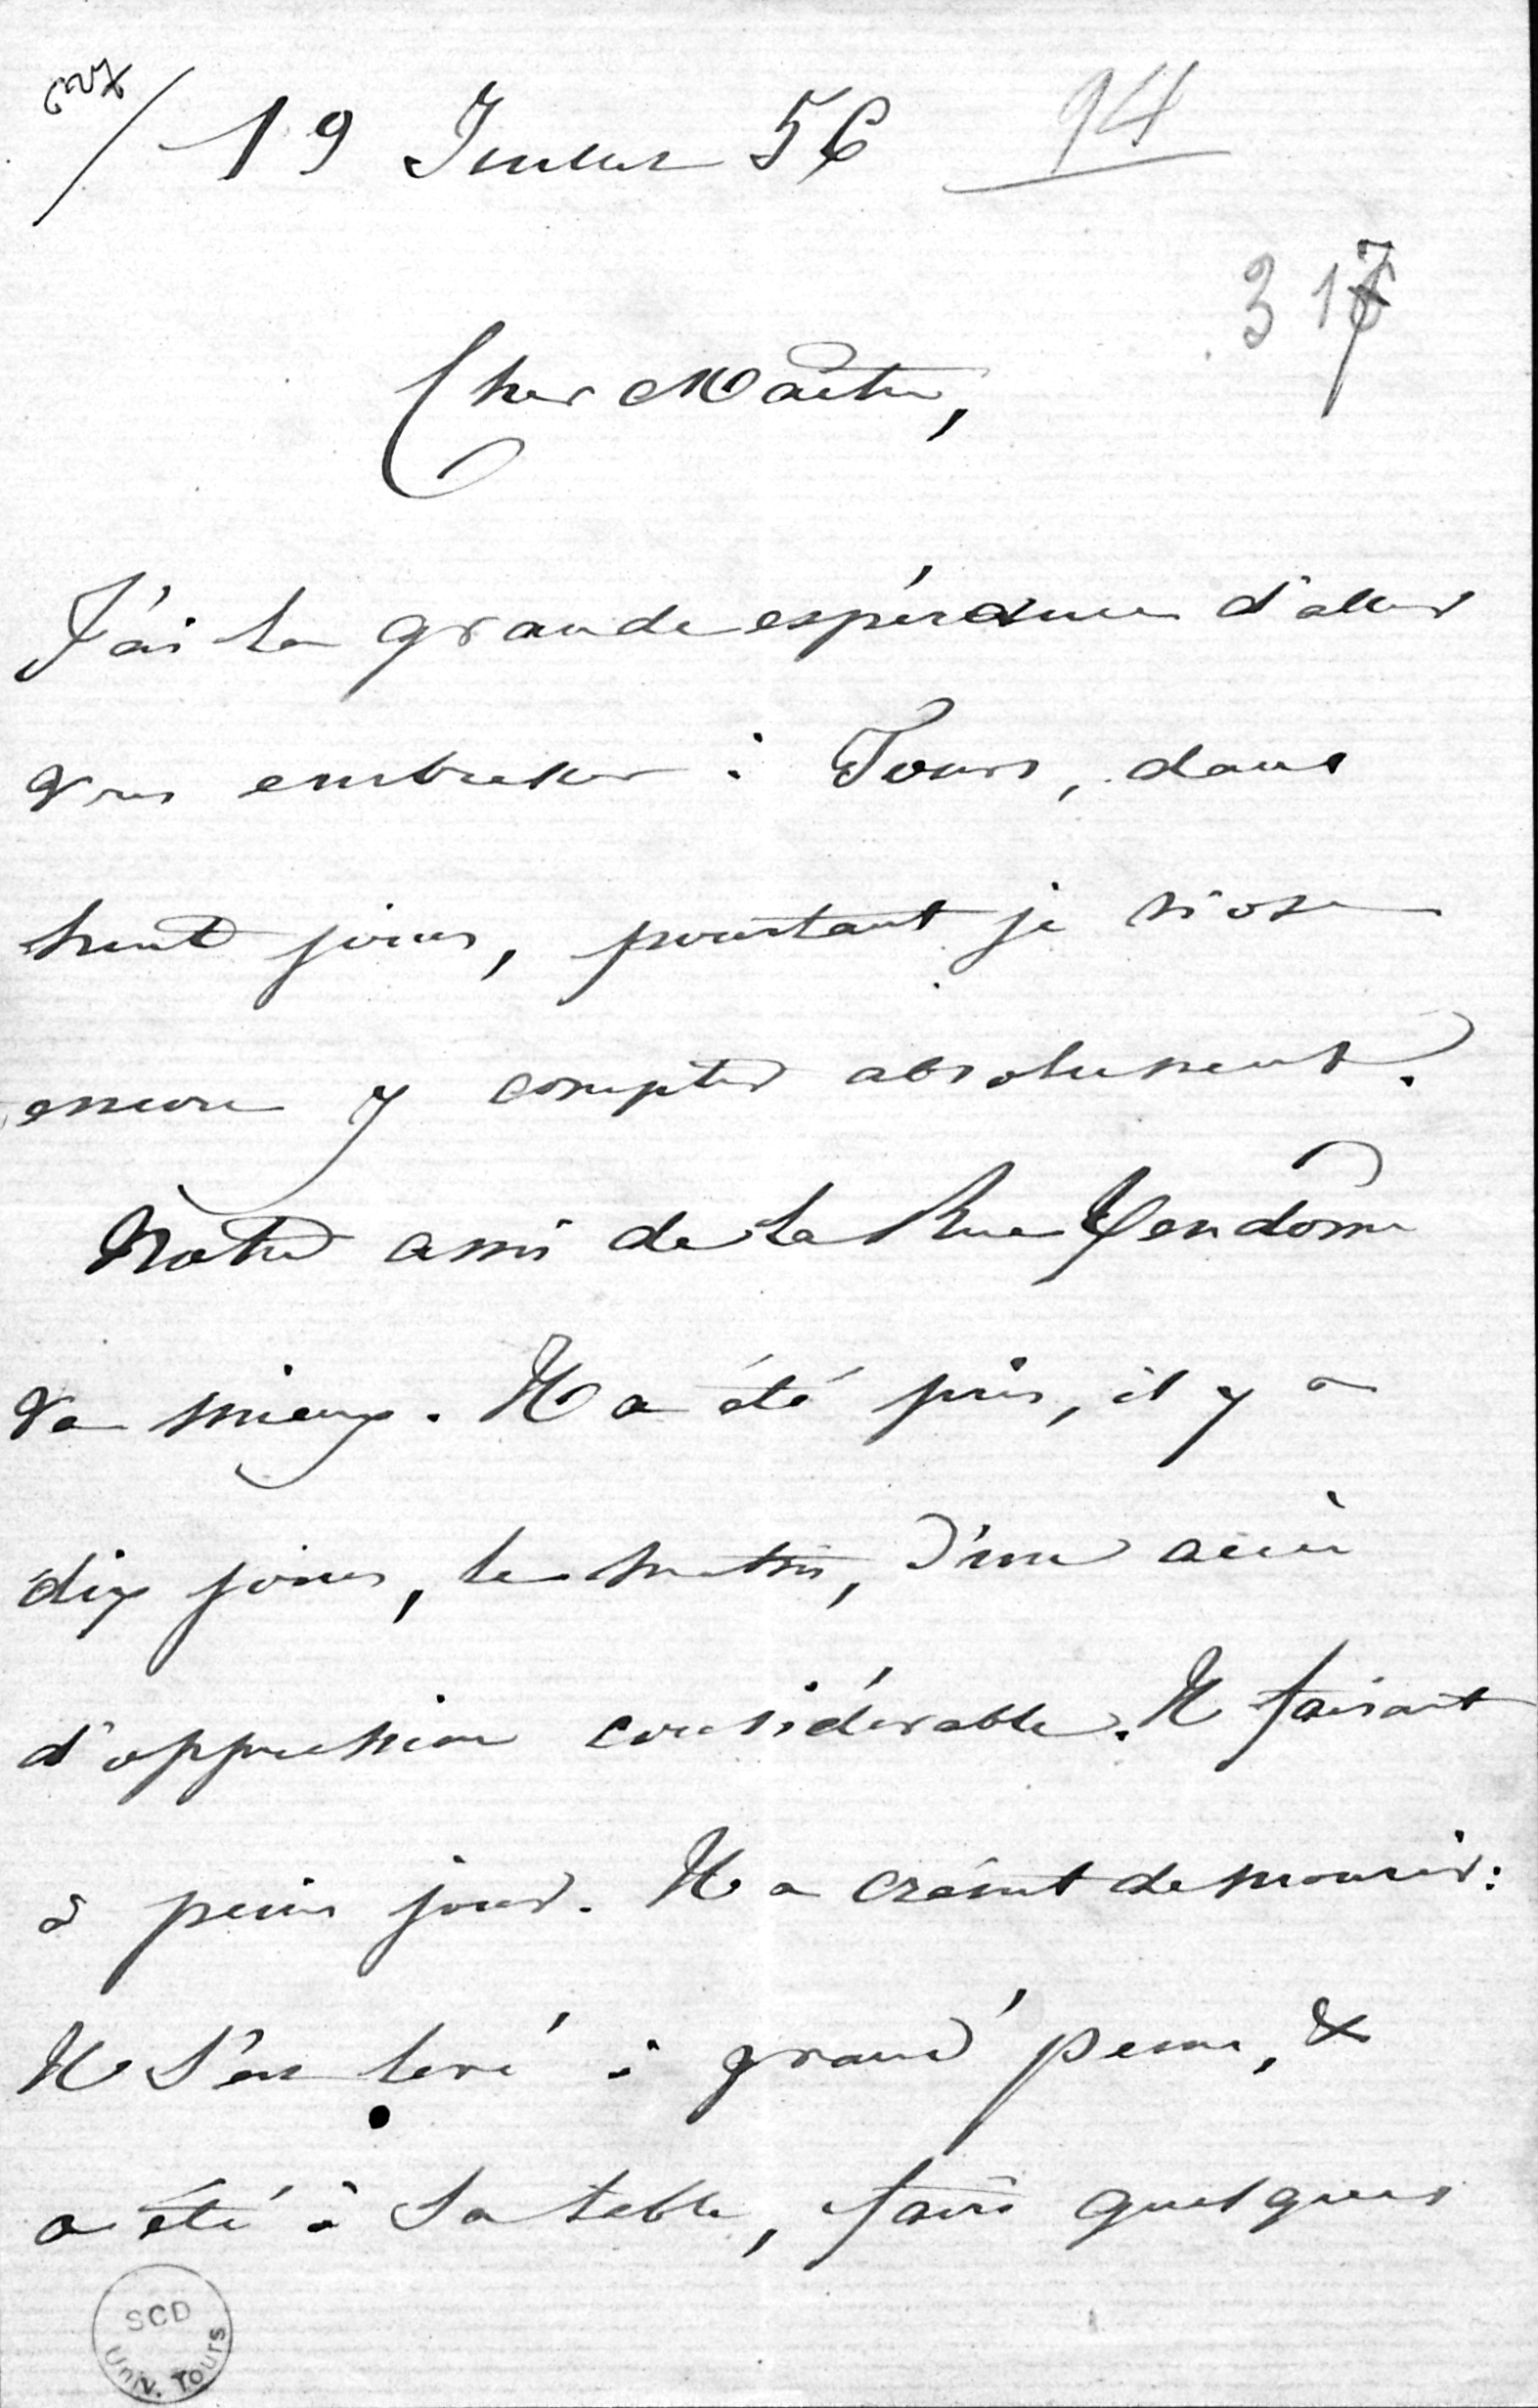 19 Juillet 56 94
317
Cher Maître,
J'ai la grande espérance d'aller
vous embrasser à Tours, dans
huit jours, pourtant je n'ose
encore y compter absolument.
Notre ami de la Rue Vendôme
va mieux. Il a été pris, il y a
dix jours, le matin, d'un accès
d'oppression considérable. Il faisait
à peine jour. Il a craint de mourir:
Il s'est levé à grand' peine, &
a été à sa table, faire quelques
SCD
Univ. Tours